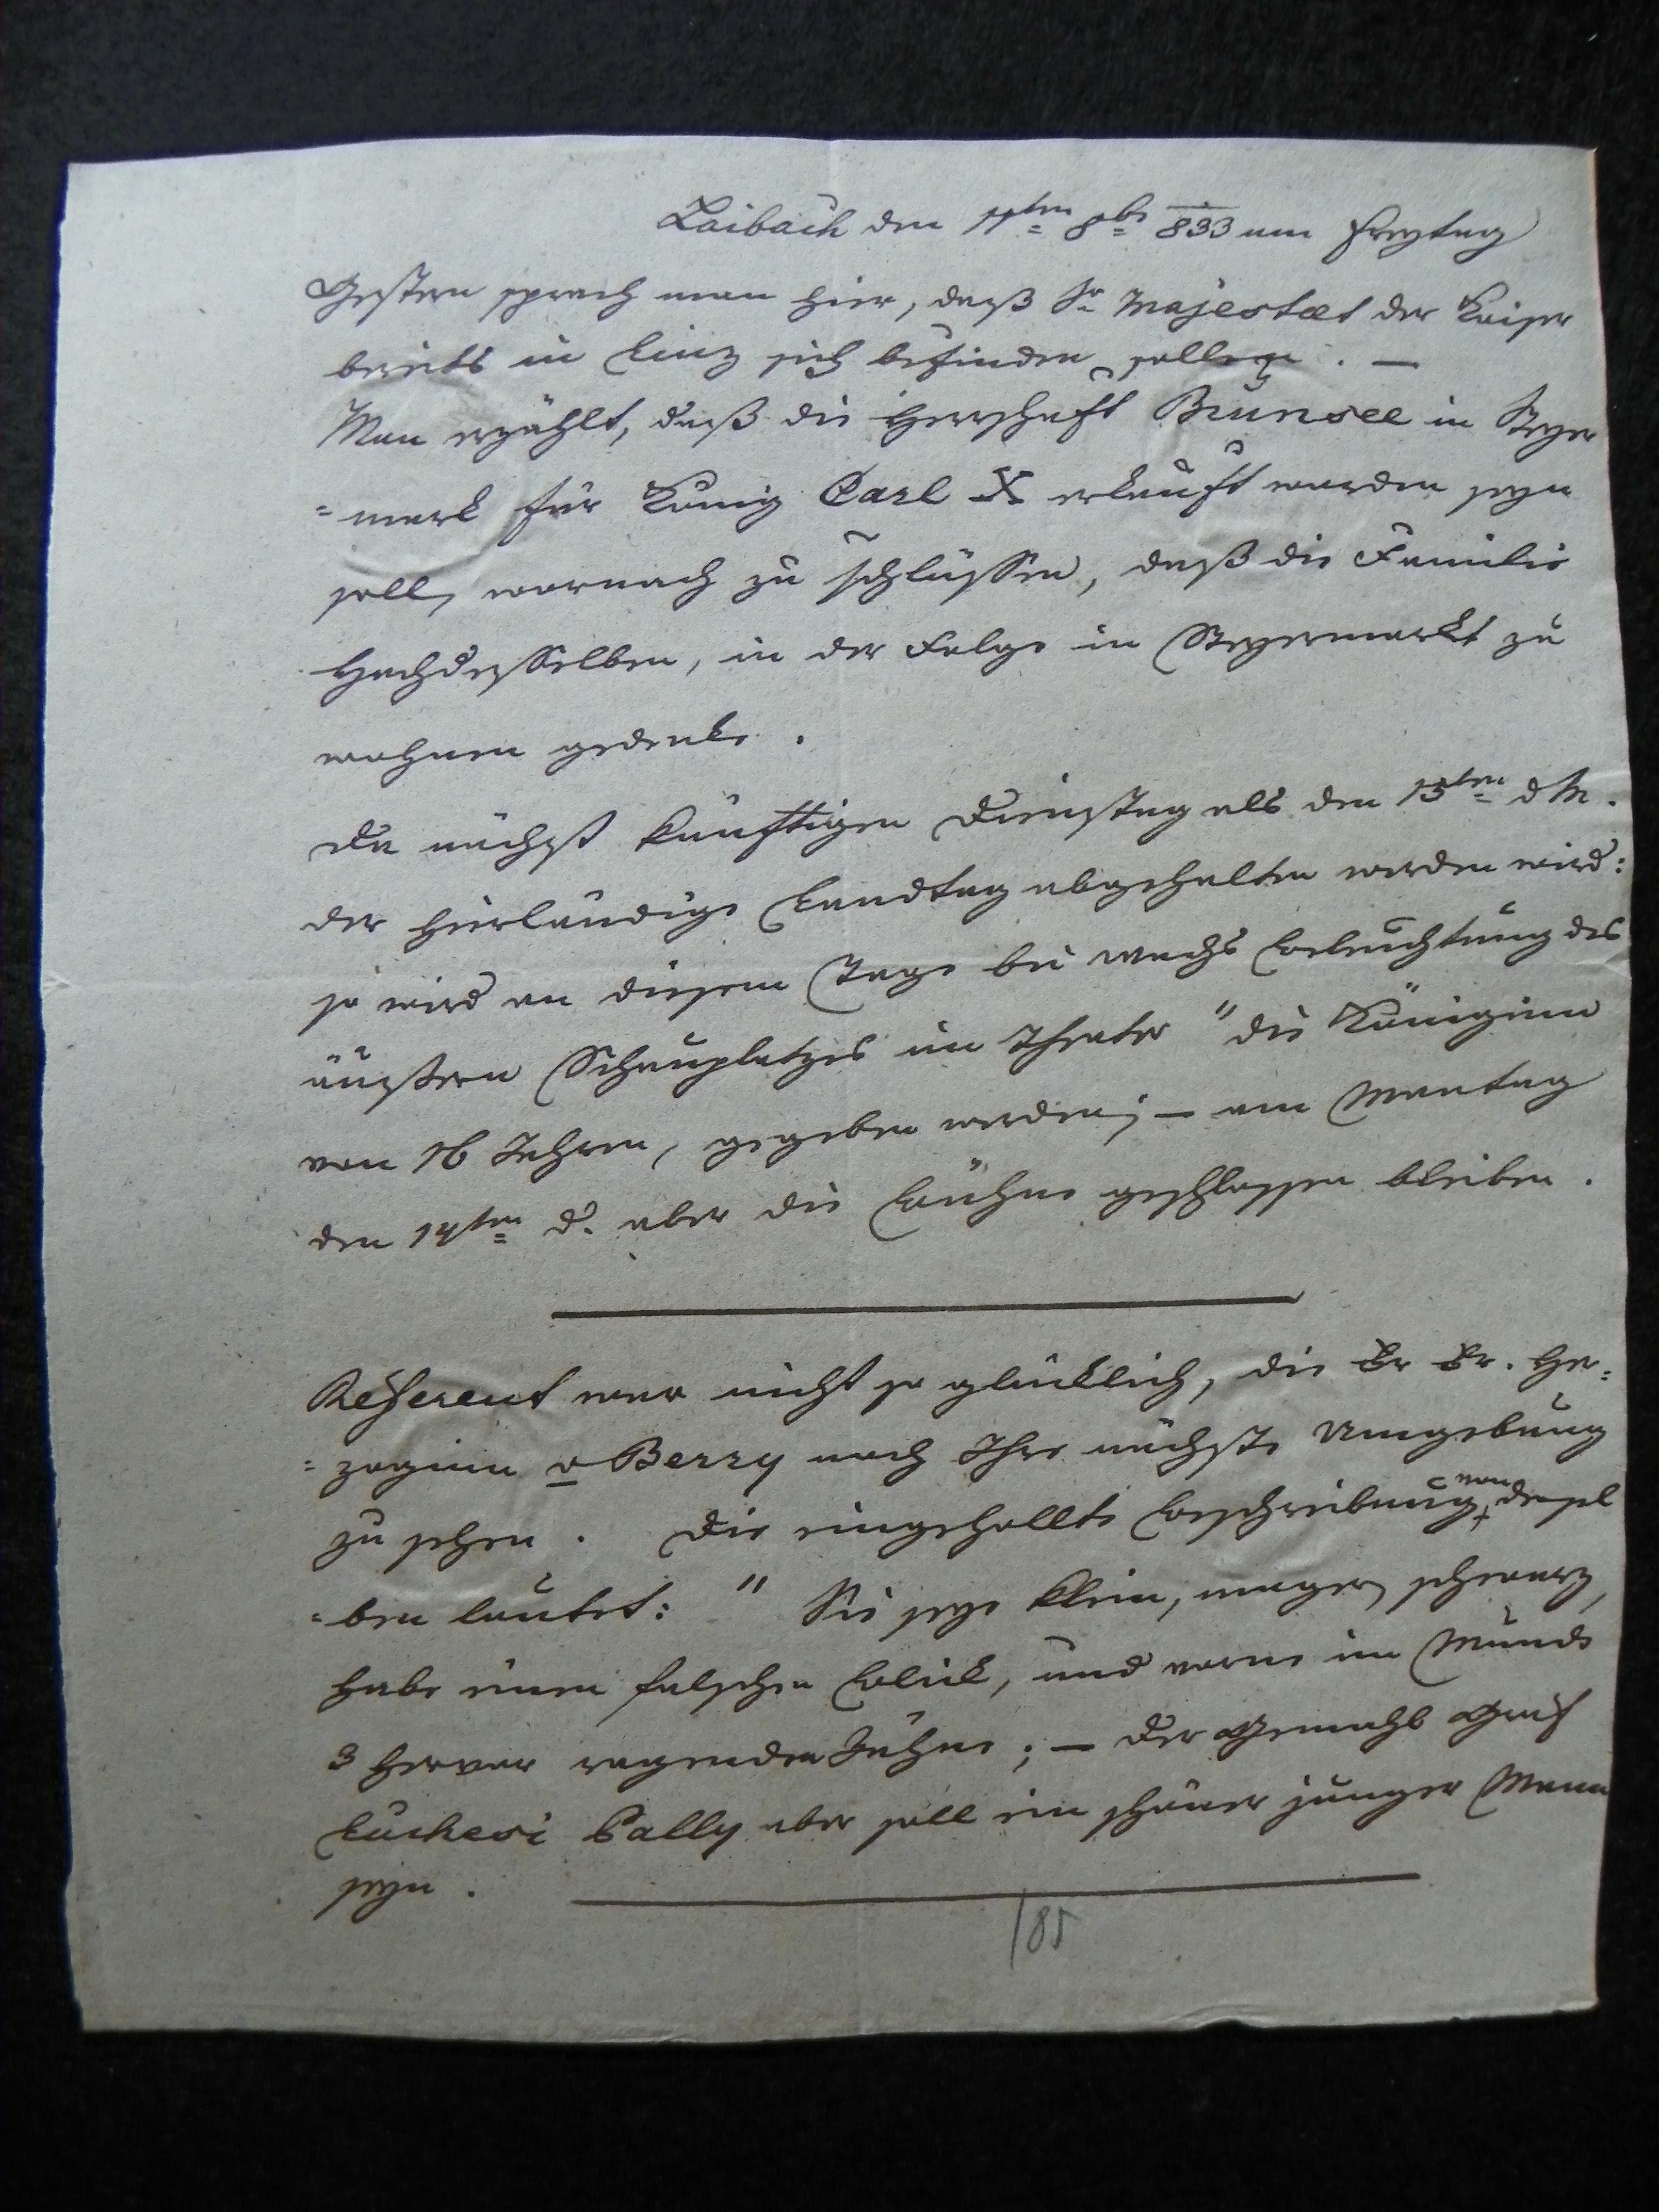 Laibach den 11ten 8br 833 am Freytag
Gestern sprach man hier, daß Se Majestaet der Kaiser
bereits in Linz sich befinden sollen. —
Man erzählt, daß die Herrschaft Brunsee in Steyer
=mark für König Carl X erkauft worden seyn
soll, wornach zu schlüssen, daß die Familie
Hochdesselben, in der Folge in Steyermarkt zu
wohnen gedenke.
Da nächst künftigen Dienstag als den 15ten d M.
der hierländige Landtag abgehalten werden wird:
so wird an diesem Tage bei Wachs Beleuchtung des
äußern Schauplatzes im Theater "die Königinn
von 16 Jahren, gegeben werden; — am Montag
den 14ten d. aber die Bühne geschlossen bleiben.
Referent war nicht so glücklich, die Fr Fr. Her=
=zoginn v Berry noch Ihre nächste Umgebung
zu sehen. Die eingehollte Beschreibung von dersel
=ben lautet: " Sie seye klein, mager, schwarz,
habe einen falschen Blick, und vorne im Munde
3 hervor ragende Zähne; — der Gemahl Graf
Luchesi Pally aber soll ein schöner junger Mann
seyn.
185